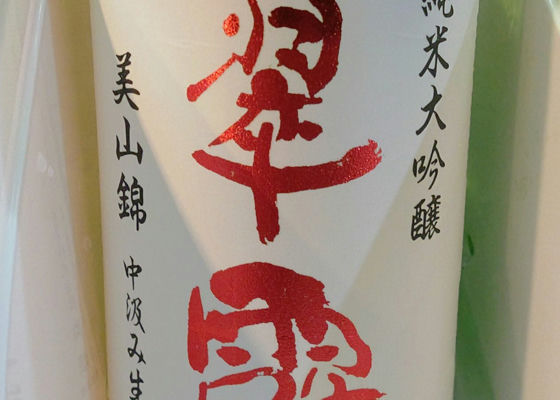 純米大吟醸
翠露
美山錦 中汲み生